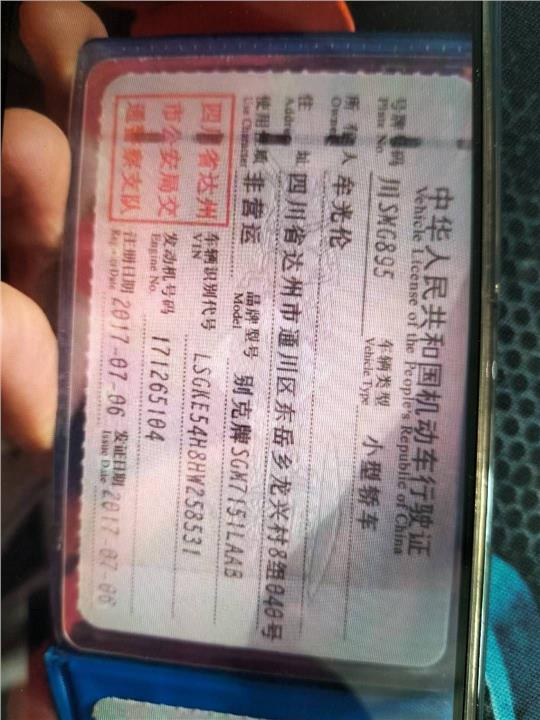 中华人民共和国机动车行驶证
Vehicle License of the People's Republic of China
号牌号码 川SMG895 车辆类型 小型轿车
Plate No. Vehicle Type
所有人 牟光伦
Owner
住址 四川省达州市通川区东岳乡龙兴村8组040号
Address
使用性质 非营运 品牌型号 别克牌SGM7151LAAB
Use Character Model
四川省达州
市公安局交
通警察支队
车辆识别代号 LSGKE54H8HW258531
VIN
发动机号码 171265104
Engine No.
注册日期 2017-07-06 发证日期 2017-07-06
Register Date Issue Date